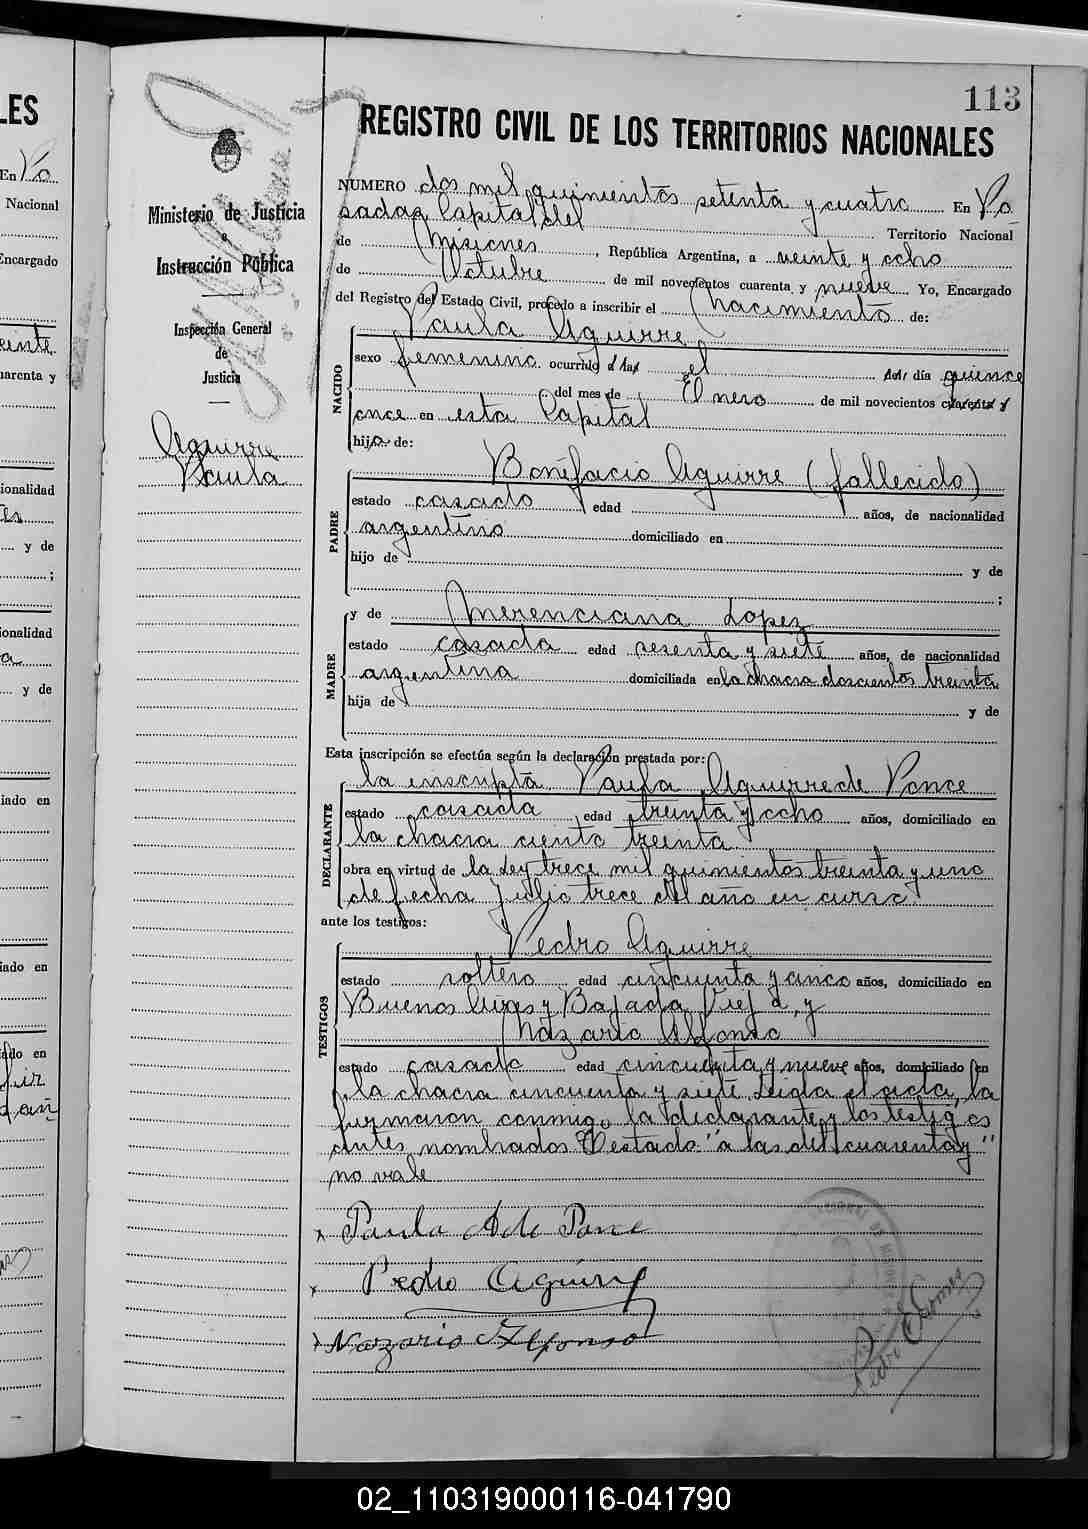 113
REGISTRO CIVIL DE LOS TERRITORIOS NACIONALES
Ministerio de Justicia
e
Instrucción Pública
Inspección General
de
Justicia
Aguirre
Paula
NUMERO dos mil quinientos setenta y cuatro En Po
sadas Capital del Territorio Nacional
de Misiones, República Argentina, a veinte y ocho
de Octubre de mil novecientos cuarenta y nueve Yo, Encargado
del Registro del Estado Civil, procedo a inscribir el Nacimiento de:
NACIDO
Paula Aguirre
sexo femenino ocurrido a las el del día quince
del mes de Enero de mil novecientos cuarenta y
once en esta Capital
hija de:
PADRE
Bonifacio Aguirre (fallecido)
estado casado edad años, de nacionalidad
argentino domiciliado en
hijo de y de
;
MADRE
y de Merenciana Lopez
estado casada edad sesenta y siete años, de nacionalidad
argentina domiciliada en la chacra doscientos treinta
hija de y de
Esta inscripción se efectúa según la declaración prestada por:
DECLARANTE
la inscripta Paula Aguirre de Ponce
estado casada edad treinta y ocho años, domiciliado en
la chacra ciento treinta
obra en virtud de la Ley trece mil quinientos treinta y uno
de fecha Julio trece del año en curso
ante los testigos:
TESTIGOS
Pedro Aguirre
estado soltero edad cincuenta y cinco años, domiciliado en
Buenos Aires y Bajada Vieja, y
Nazario Alfonso
estado casado edad cincuenta y nueve años, domiciliado en
la chacra cincuenta y siete Leida el acta, la
firmaron conmigo la declarante y los testigos
antes nombrados Testado "a las del cuarenta y"
no vale
Paula A de Ponce
Pedro Aguirre
Nazario Alfonso
02_110319000116-041790